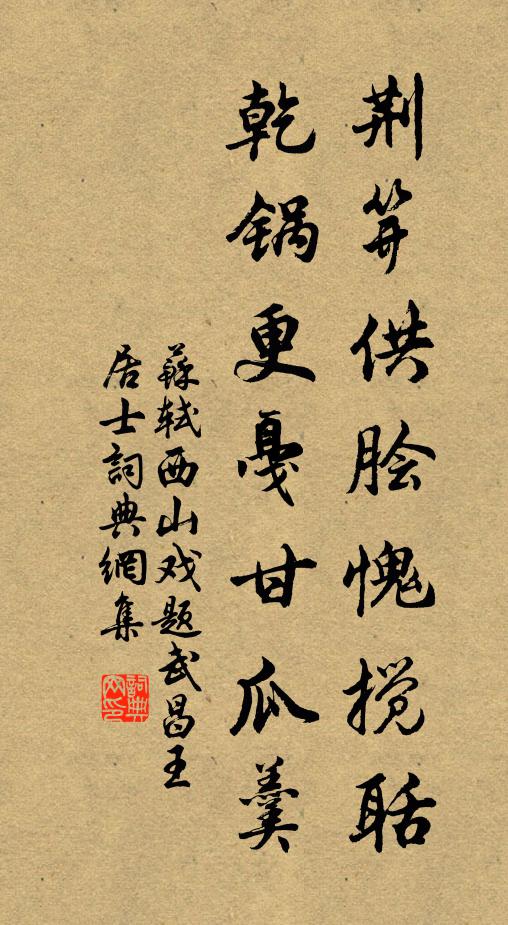 荆笄供脍愧搅聒
乾锅更戛甘瓜羹
蘇轼西山戏题武昌王
居士詞典網集
詞典网印